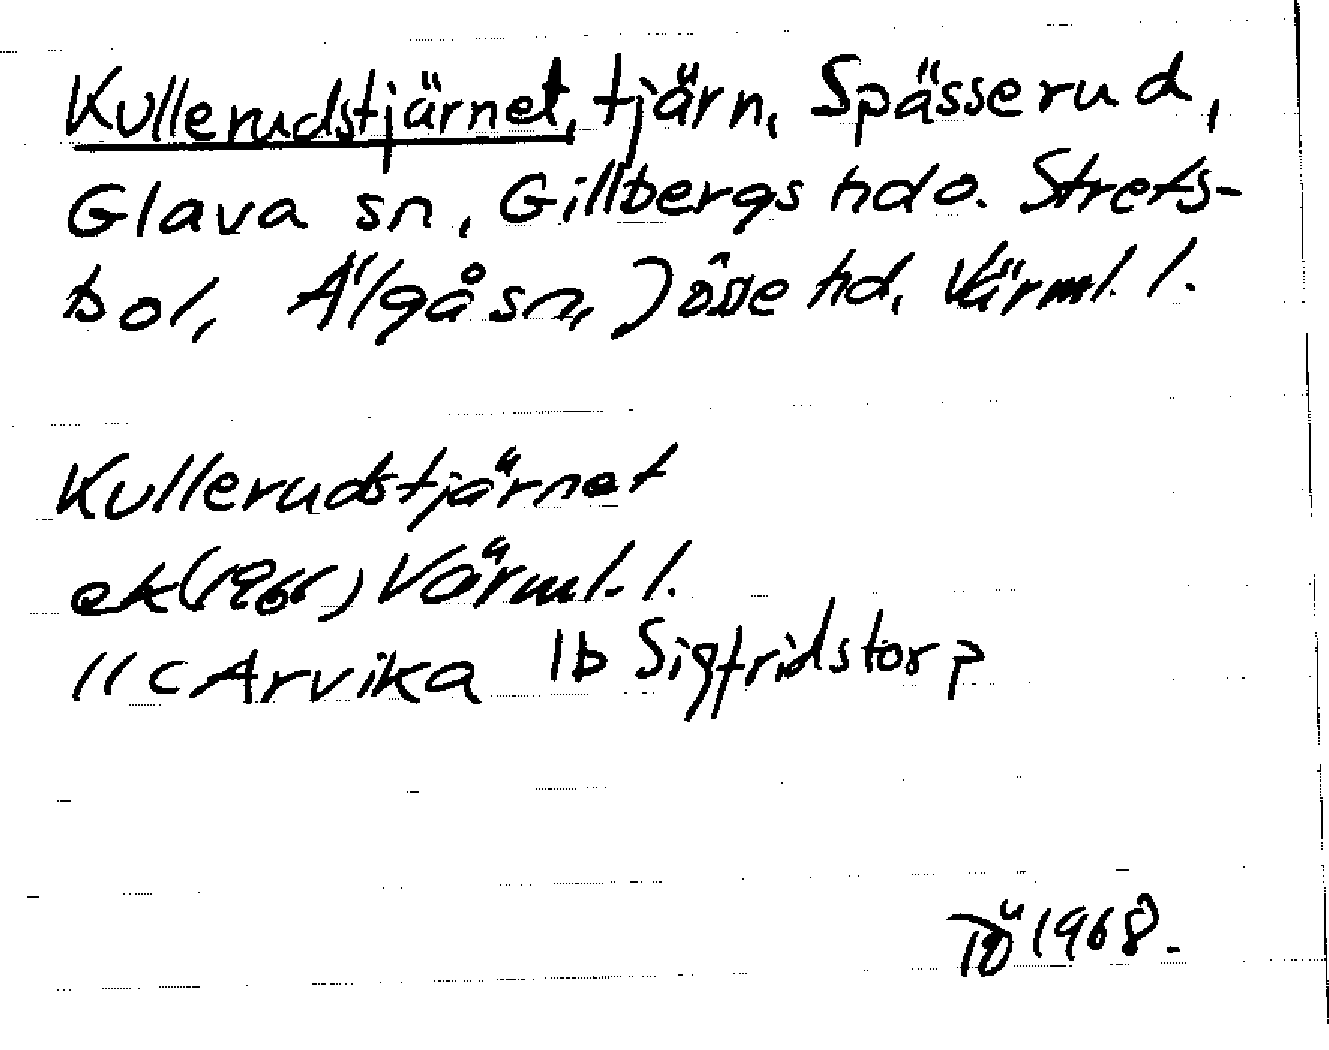 Kullerudstjärnet, tjärn, Spässerud,
Glava sn, Gillbergs hd o. Strets-
bol, Älgå sn, Jösse hd, Värml. l.
Kullerudstjärnet
ek (1966) Värml. l.
11c Arvika 1b Sigfridstorp
TÖ 1968.